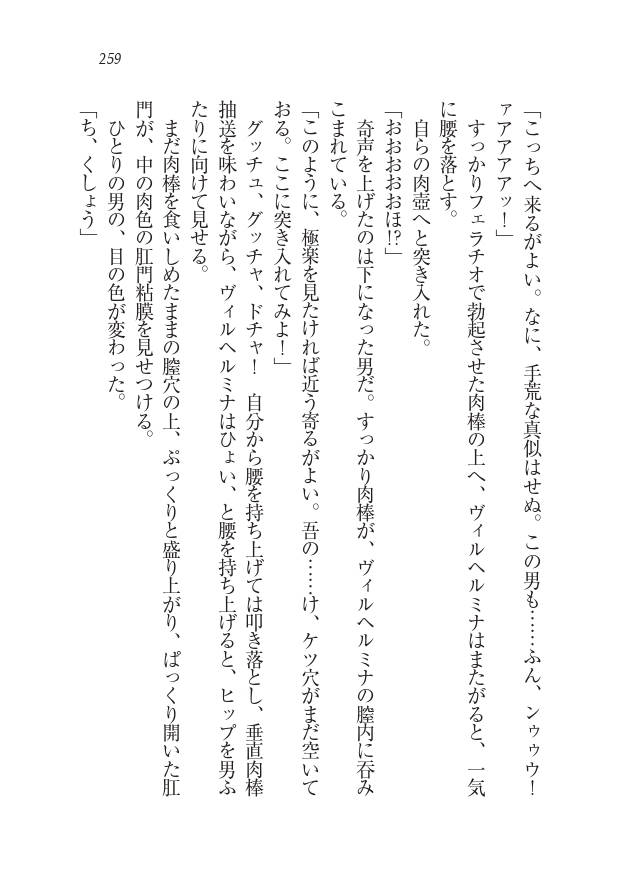 259
「こっちへ来るがよい。なに、手荒な真似はせぬ。この男も……ふん、ンゥゥウ！
ァアアアアッ！」
　すっかりフェラチオで勃起させた肉棒の上へ、ヴィルヘルミナはまたがると、一気
に腰を落とす。
　自らの肉壺へと突き入れた。
「おおおおおほ!?」
　奇声を上げたのは下になった男だ。すっかり肉棒が、ヴィルヘルミナの膣内に呑み
こまれている。
「このように、極楽を見たければ近う寄るがよい。吾の……け、ケツ穴がまだ空いて
おる。ここに突き入れてみよ！」
　グッチュ、グッチャ、ドチャ！　自分から腰を持ち上げては叩き落とし、垂直肉棒
抽送を味わいながら、ヴィルヘルミナはひょい、と腰を持ち上げると、ヒップを男ふ
たりに向けて見せる。
　まだ肉棒を食いしめたままの膣穴の上、ぷっくりと盛り上がり、ぱっくり開いた肛
門が、中の肉色の肛門粘膜を見せつける。
　ひとりの男の、目の色が変わった。
「ち、くしょう」